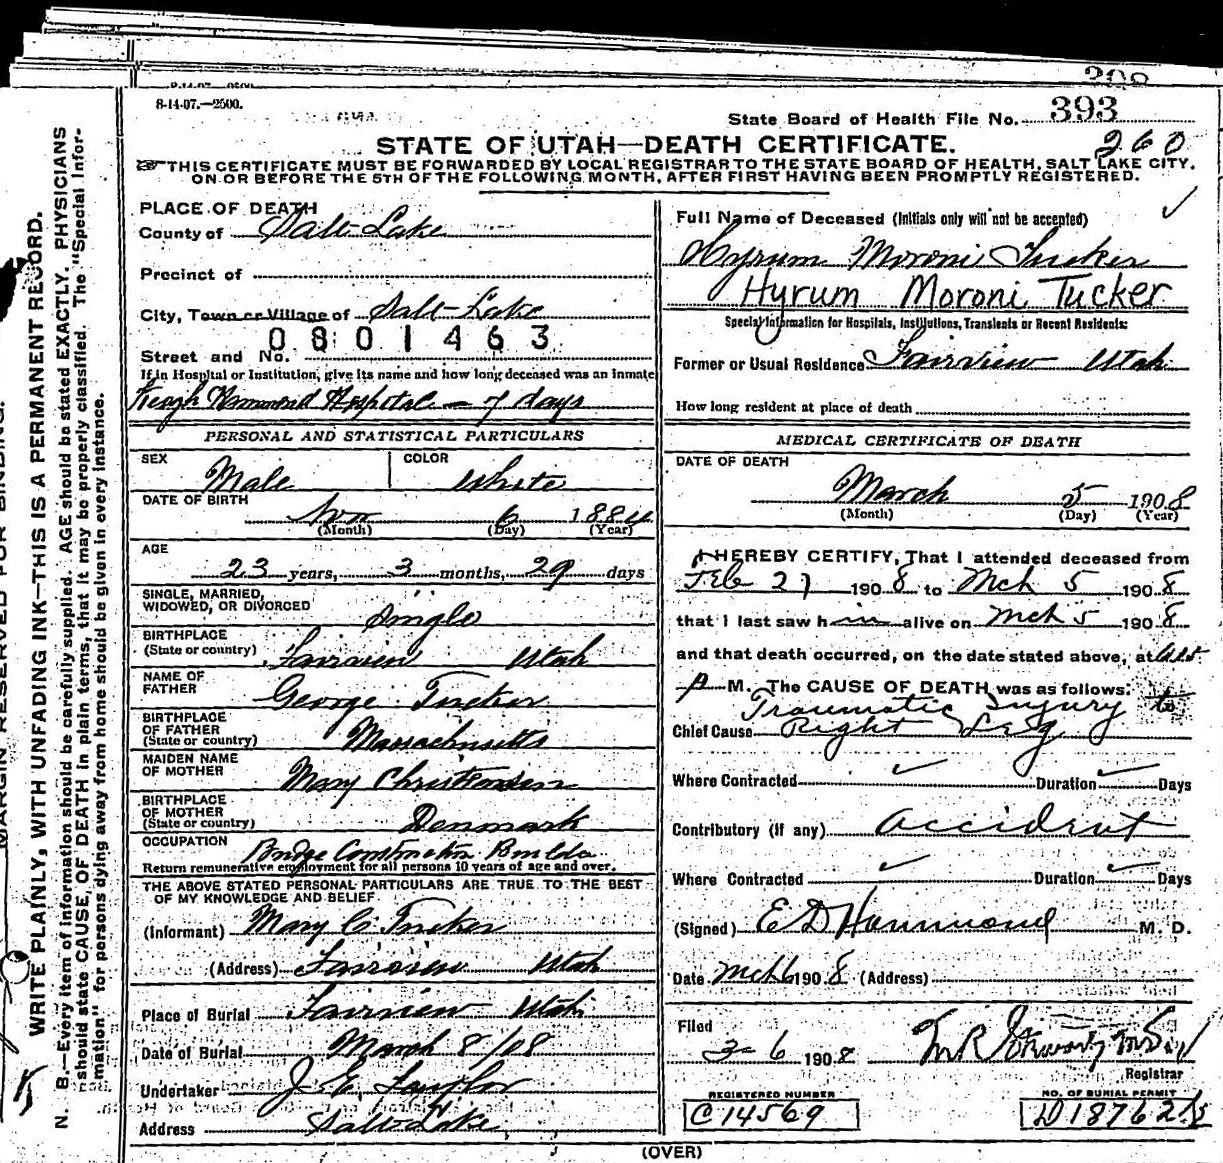 398
8-14-07.—2500.
State Board of Health File No. 393
STATE OF UTAH—DEATH CERTIFICATE. 260
THIS CERTIFICATE MUST BE FORWARDED BY LOCAL REGISTRAR TO THE STATE BOARD OF HEALTH, SALT LAKE CITY,
ON OR BEFORE THE 5TH OF THE FOLLOWING MONTH, AFTER FIRST HAVING BEEN PROMPTLY REGISTERED.
MARGIN RESERVED FOR BINDING.
WRITE PLAINLY, WITH UNFADING INK—THIS IS A PERMANENT RECORD.
N. B.—Every item of information should be carefully supplied. AGE should be stated EXACTLY. PHYSICIANS
should state CAUSE OF DEATH in plain terms, that it may be properly classified. The "Special Infor-
mation" for persons dying away from home should be given in every instance.
PLACE OF DEATH
County of Salt Lake
Precinct of
City, Town or Village of Salt Lake
0801463
Street and No.
If in Hospital or Institution, give its name and how long deceased was an inmate
Keogh Hammond Hospital — 7 days
PERSONAL AND STATISTICAL PARTICULARS
SEX Male COLOR White
DATE OF BIRTH
Nov 6 1884
(Month) (Day) (Year)
AGE
23 years, 3 months, 29 days
SINGLE, MARRIED,
WIDOWED, OR DIVORCED Single
BIRTHPLACE
(State or country) Fairview Utah
NAME OF
FATHER George Tucker
BIRTHPLACE
OF FATHER
(State or country) Massachusetts
MAIDEN NAME
OF MOTHER Mary Christensen
BIRTHPLACE
OF MOTHER
(State or country) Denmark
OCCUPATION Bridge Construction Builder
Return remunerative employment for all persons 10 years of age and over.
THE ABOVE STATED PERSONAL PARTICULARS ARE TRUE TO THE BEST
OF MY KNOWLEDGE AND BELIEF.
(Informant) Mary C. Tucker
(Address) Fairview Utah
Place of Burial Fairview Utah
Date of Burial March 8/08
Undertaker J. E. Taylor
Address Salt Lake
Full Name of Deceased (Initials only will not be accepted)
Hyrum Moroni Tucker
Hyrum Moroni Tucker
Special Information for Hospitals, Institutions, Transients or Recent Residents:
Former or Usual Residence Fairview Utah
How long resident at place of death
MEDICAL CERTIFICATE OF DEATH
DATE OF DEATH
March 5 1908
(Month) (Day) (Year)
I HEREBY CERTIFY, That I attended deceased from
Feb 27 1908 to Mch 5 1908
that I last saw him alive on Mch 5 1908
and that death occurred, on the date stated above, at
P M. The CAUSE OF DEATH was as follows:
Traumatic Injury to
Chief Cause Right Leg
Where Contracted Duration Days
Contributory (if any) Accident
Where Contracted Duration Days
(Signed) E D Hammond M. D.
Date Mch 6 1908 (Address)
Filed
3-6 1908
Registrar
REGISTERED NUMBER
C14569
NO. OF BURIAL PERMIT
D18762
(OVER)